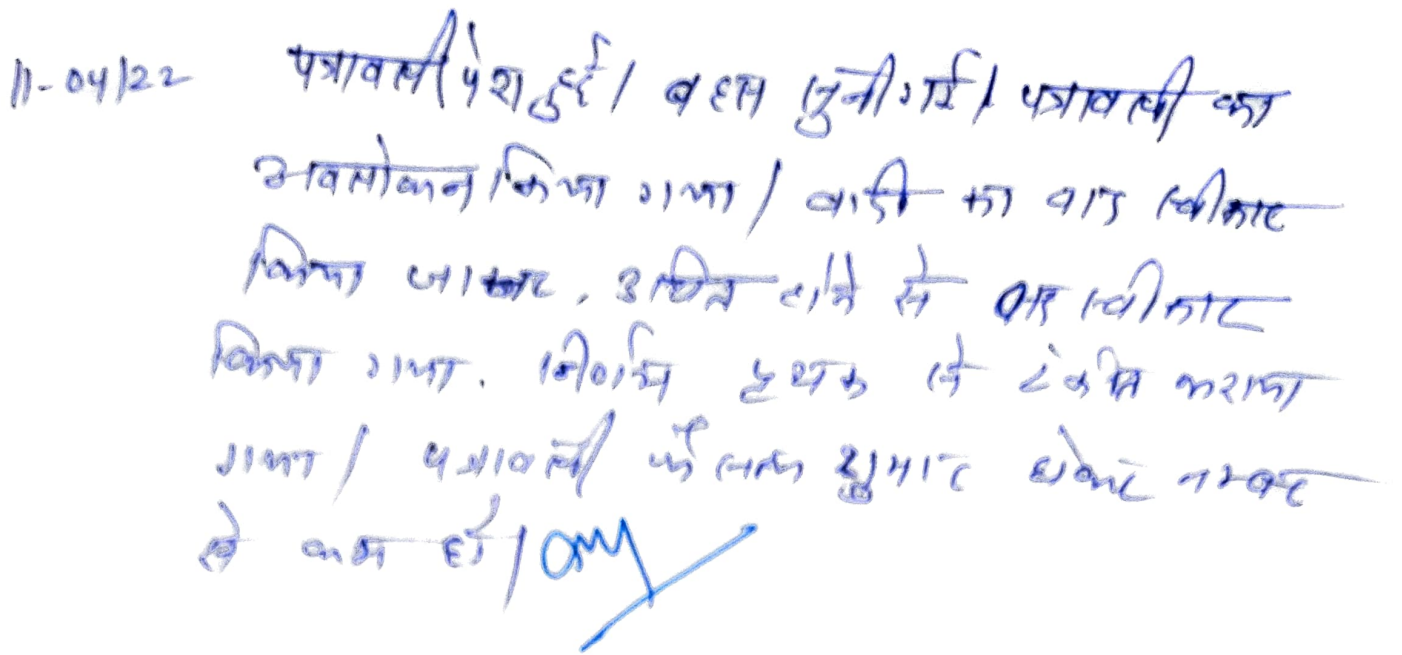 11-04/22 पत्रावली पेश हुई। बहस सुनी गई। पत्रावली का
अवलोकन किया गया। वादी का वाद स्वीकार
किया जाकर, उचित होने से वाद स्वीकार
किया गया. निर्णय पृथक से टंकित कराया
गया। पत्रावली फैसल शुमार होकर नम्बर
से कम हो।